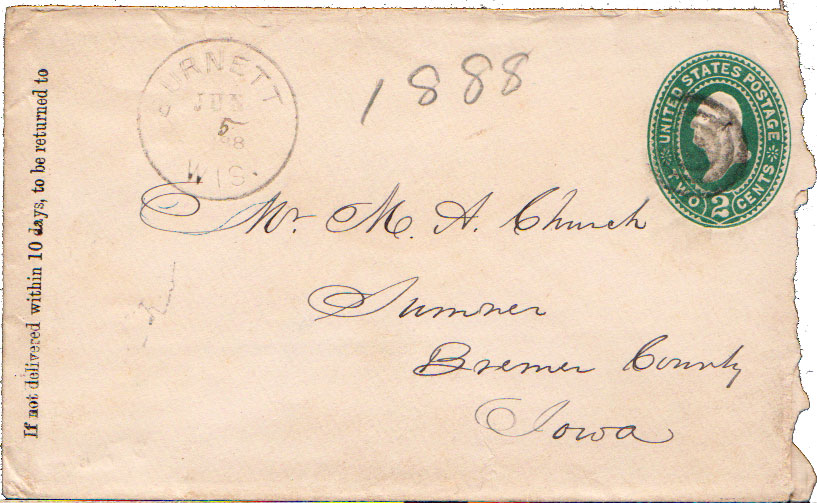 If not delivered within 10 days, to be returned to
BURNETT
JUN
5
88
WIS.
1888
UNITED STATES POSTAGE
TWO 2 CENTS
Mr. M. A. Church
Sumner
Bremer County
Iowa